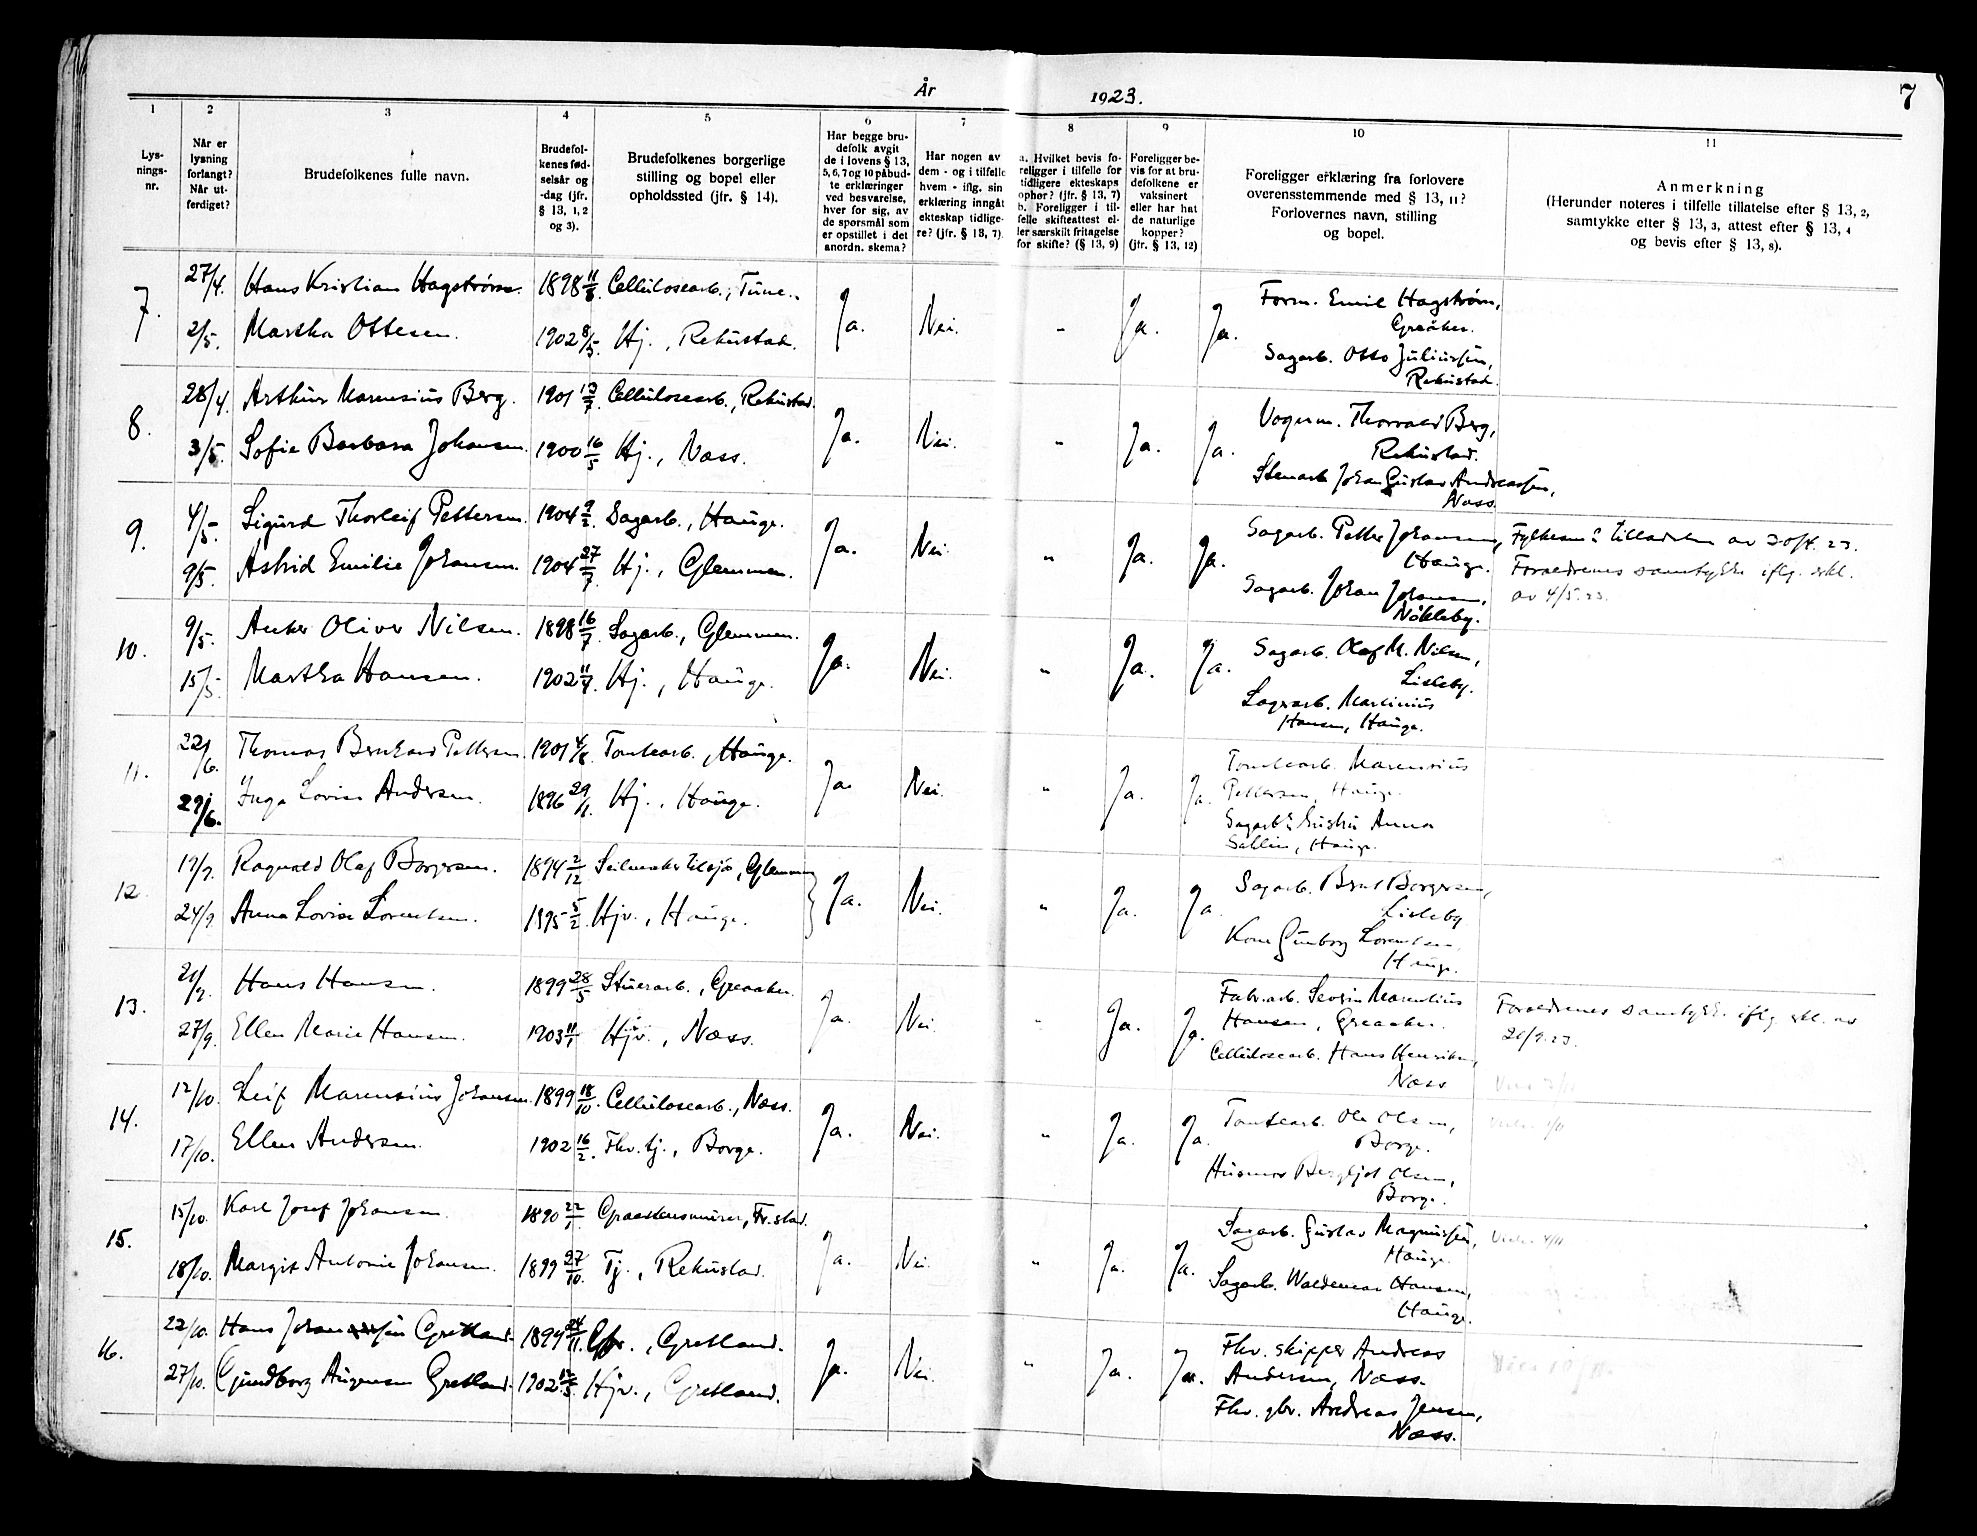 År 1923. 7
1 2 3 4 5 6 7 8 9 10 11
Lys-
nings-
nr.
Når er
lysning
forlangt?
Når ut-
ferdiget?
Brudefolkenes fulle navn.
Brudefol-
kenes fød-
selsår og
-dag (jfr.
§ 13, 1, 2
og 3).
Brudefolkenes borgerlige
stilling og bopel eller
opholdssted (jfr. § 14).
Har begge bru-
defolk avgit
de i lovens § 13,
5, 6, 7 og 10 påbud-
te erklæringer
ved besvarelse,
hver for sig, av
de spørsmål som
er opstillet i det
anordn. skema?
Har nogen av
dem - og i tilfelle
hvem - iflg. sin
erklæring inngåt
ekteskap tidlige-
re? (jfr. § 13, 7).
a. Hvilket bevis fo-
religger i tilfelle for
tidligere ekteskaps
ophør? (jfr. § 13, 7)
b. Foreligger i til-
felle skifteattest el-
ler særskilt fritagelse
for skifte? (§ 13, 9)
Foreligger be-
vis for at bru-
defolkene er
vaksinert
eller har hat
de naturlige
kopper?
(jfr. § 13, 12)
Foreligger erklæring fra forlovere
overensstemmende med § 13, 11?
Forlovernes navn, stilling
og bopel.
Anmerkning
(Herunder noteres i tilfelle tillatelse efter § 13, 2,
samtykke efter § 13, 3, attest efter § 13, 4
og bevis efter § 13, 8).
7. 27/4. Hans Kristian Hagstrøm 1898 11/8. Cellulosearb., Tune. Ja. Nei. " Ja. Ja. Form. Emil Hagstrøm,
Greåker.
2/5. Martha Ottesen. 1902 8/5. Hj., Rekustad. Sagarb. Otto Juliussen,
Rekustad.
8. 28/4. Arthur Marensius Berg. 1901 13/7. Cellulosearb., Rekustad. Ja. Nei. " Ja. Ja. Vognm. Thorvald Berg,
Rekustad.
3/5. Sofie Barbara Johansen. 1900 16/5 Hj., Næss. Stenarb. Johan Gustav Andreassen,
Næss.
9. 4/5. Sigurd Thorleif Pettersen. 1904 9/2. Sagarb., Hauge. Ja. Nei. " Ja. Ja. Sagarb. Petter Johansen,
Hauge. Fylkesm.s tilladelse av 30/4. 23.
9/5. Astrid Emilie Johansen. 1904 27/7. Hj., Glemmen. Sagarb. Johan Johansen,
Nökleby. Forældrenes samtykke iflg. erkl.
av 4/5. 23.
10. 9/5. Anker Oliver Nilsen. 1898 16/7. Sagarb., Glemmen. Ja. Nei. " Ja. Ja. Sagarb. Olaf M. Nilsen,
Lisleby.
15/5. Martha Hansen. 1902 11/4. Hj., Hauge. Sagarb. Martinius
Hansen, Hauge.
11. 22/6. Thomas Bernhard Pettersen. 1901 4/8. Tomtearb., Hauge. Ja. Nei. " Ja. Ja. Tomtearb. Marensius
Pettersen, Hauge.
29/6. Inga Lovise Andersen. 1896 29/1. Hj., Hauge. Sagarb.s hustru Anna
Sahlin, Hauge.
12. 19/9. Ragnvald Olaf Borgersen. 1894 2/12 Seilmaker tilsjø, Glemmen Ja. Nei. " Ja. Ja. Sagarb. Bernt Borgersen,
Lisleby
24/9. Anna Lovise Lorentsen. 1895 5/2 Hjv., Hauge. Kone Gunborg Lorentsen,
Hauge.
13. 21/9. Hans Hansen. 1899 28/5 Stuerarb., Greaaker. Ja. Nei. " Ja. Ja. Fabr.arb. Severin Marentius
Hansen, Greaaker. Forældrenes samtykke iflg. erkl. av
27/9. Ellen Marie Hansen. 1903 11/1 Hjv., Næss. Cellulosearb. Hans Henriksen,
Næss 21/9. 23.
14. 12/10. Leif Marensius Johansen. 1899 18/10. Cellulosearb., Næss. Ja. Nei. " Ja. Ja. Tomtearb. Ole Olsen,
Borge.
17/10. Ellen Andersen. 1902 16/2. Fhv. tj., Borge. Husmor Bergljot Olsen,
Borge.
15. 15/10. Karl Josef Johansen. 1890 22/1. Graastensmurer, Fr.stad. Ja. Nei. " Ja. Ja. Sagarb. Gustav Magnussen,
Hauge.
18/10. Margit Antonie Johansen. 1899 27/10. Tj., Rekustad. Sagarb. Waldemar Hansen,
Hauge.
16. 22/10. Hans Johansen Gretland. 1894 24/11. Gbr., Gretland. Ja. Nei. " Ja. Ja. Fhv. skipper Andreas
Andersen, Næss.
27/10. Gundborg Augensen Gretland. 1902 12/5. Hjv., Gretland. Fhv. gbr. Andreas Jensen,
Næss.